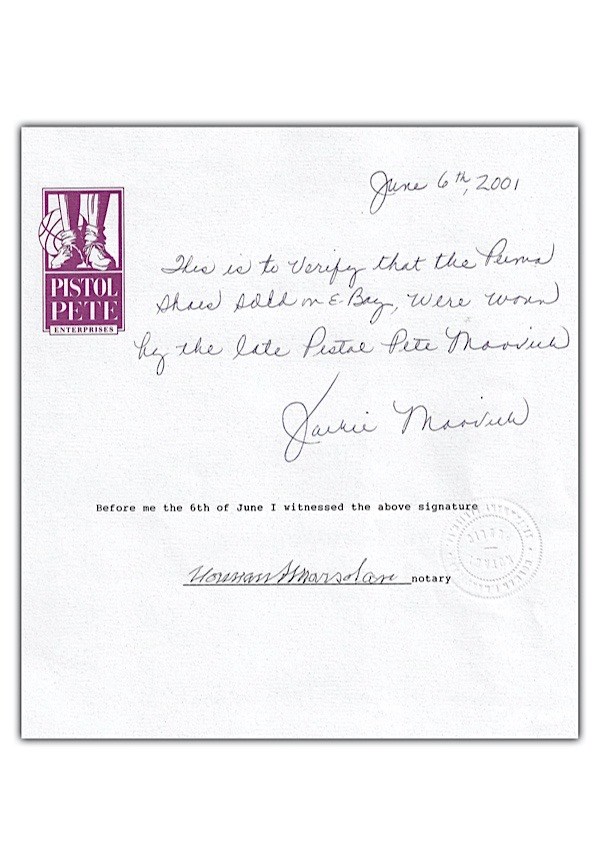 June 6th, 2001
PISTOL
PETE
ENTERPRISES
This is to Verify that the Puma
Shoes sold on E-Bay, Were worn
by the late Pistol Pete Maravich
Jackie Maravich
Before me the 6th of June I witnessed the above signature
notary